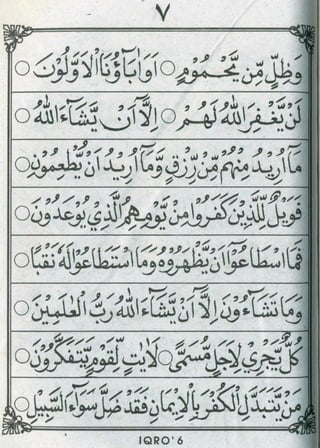 ٧
وَظِلٍّ مِّنْ يَّحْمُوْمٍ ○ اَوَاٰبَآؤُنَا الْاَوَّلُوْنَ ○
لَنْ يَّغْفِرَ اللّٰهُ لَهُمْ ○ اِلَّآ اَنْ يَّشَآءَ اللّٰهُ ○
مَآ اُرِيْدُ مِنْهُمْ مِّنْ رِّزْقٍ وَّمَآ اُرِيْدُ اَنْ يُّطْعِمُوْنِ ○
فَوَيْلٌ لِّلَّذِيْنَ كَفَرُوْا مِنْ يَّوْمِهِمُ الَّذِيْ يُوْعَدُوْنَ ○
فَمَا اسْطَاعُوْٓا اَنْ يَّظْهَرُوْهُ وَمَا اسْتَطَاعُوْا لَهٗ نَقْبًا ○
وَمَا تَشَآءُوْنَ اِلَّآ اَنْ يَّشَآءَ اللّٰهُ رَبُّ الْعٰلَمِيْنَ ○
كُلٌّ يَّجْرِيْ لِاَجَلٍ مُّسَمًّى ○ لَاٰيٰتٍ لِّقَوْمٍ يَّتَفَكَّرُوْنَ ○
مَنْ يَّتَبَدَّلِ الْكُفْرَ بِالْاِيْمَانِ فَقَدْ ضَلَّ سَوَآءَ السَّبِيْلِ ○
IQRO'6